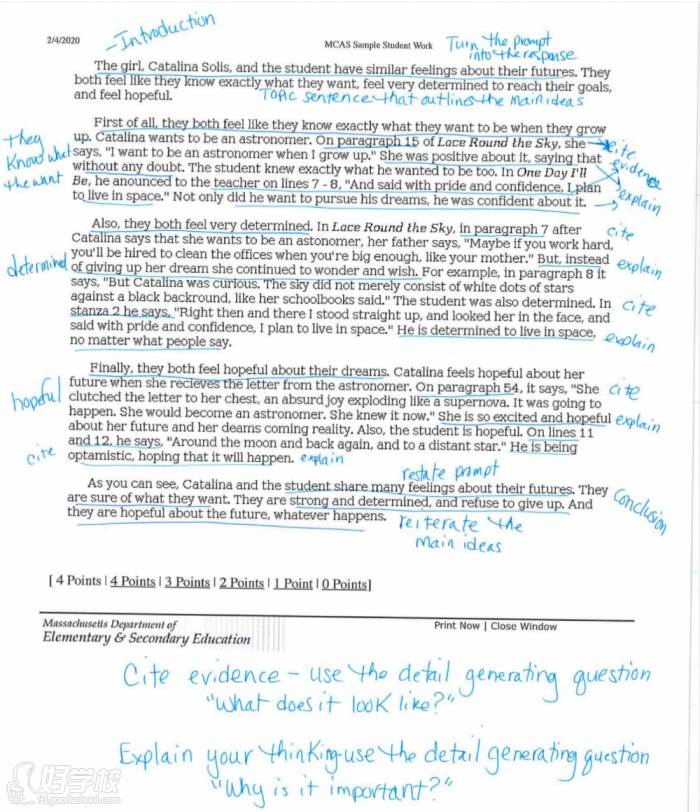 2/4/2020
- Introduction
MCAS Sample Student Work
Turn the prompt
into the response
The girl, Catalina Solis, and the student have similar feelings about their futures. They
both feel like they know exactly what they want, feel very determined to reach their goals,
and feel hopeful.
Topic sentence that outlines the main ideas
First of all, they both feel like they know exactly what they want to be when they grow
up. Catalina wants to be an astronomer. On paragraph 15 of Lace Round the Sky, she
says, "I want to be an astronomer when I grow up." She was positive about it, saying that
without any doubt. The student knew exactly what he wanted to be too. In One Day I'll
Be, he anounced to the teacher on lines 7 - 8, "And said with pride and confidence, I plan
to live in space." Not only did he want to pursue his dreams, he was confident about it.
they
Know what
the want
cite
evidence
explain
Also, they both feel very determined. In Lace Round the Sky, in paragraph 7 after
Catalina says that she wants to be an astonomer, her father says, "Maybe if you work hard,
you'll be hired to clean the offices when you're big enough, like your mother." But, instead
of giving up her dream she continued to wonder and wish. For example, in paragraph 8 it
says, "But Catalina was curious. The sky did not merely consist of white dots of stars
against a black backround, like her schoolbooks said." The student was also determined. In
stanza 2 he says, "Right then and there I stood straight up, and looked her in the face, and
said with pride and confidence, I plan to live in space." He is determined to live in space,
no matter what people say.
determined
cite
explain
cite
explain
Finally, they both feel hopeful about their dreams. Catalina feels hopeful about her
future when she recieves the letter from the astronomer. On paragraph 54, it says, "She
clutched the letter to her chest, an absurd joy exploding like a supernova. It was going to
happen. She would become an astronomer. She knew it now." She is so excited and hopeful
about her future and her deams coming reality. Also, the student is hopeful. On lines 11
and 12, he says, "Around the moon and back again, and to a distant star." He is being
optamistic, hoping that it will happen. explain
hopeful
cite
cite
explain
restate prompt
As you can see, Catalina and the student share many feelings about their futures. They
are sure of what they want. They are strong and determined, and refuse to give up. And
they are hopeful about the future, whatever happens.
Conclusion
reiterate the
main ideas
[ 4 Points | 4 Points | 3 Points | 2 Points | 1 Point | 0 Points]
Massachusetts Department of
Elementary & Secondary Education
Print Now | Close Window
Cite evidence - use the detail generating question
"What does it look like?"
Explain your thinking - use the detail generating question
"Why is it important?"
好学校
91goodschool.com